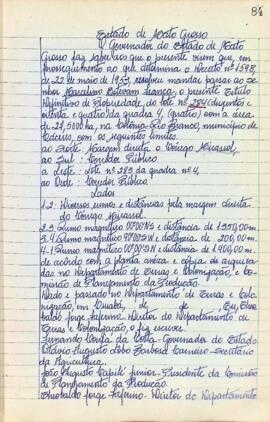 84
Estado de Mato Grosso
O Governador do Estado de Mato
Grosso faz saber aos que o presente virem que, em
prosseguimento ao que determina o Decreto nº 1598,
de 22 de maio de 1953, resolveu mandar passar ao Se-
nhor Marcelino Estevam França, o presente Título
Definitivo de Propriedade, do lote nº 284 (duzentos e
oitenta e quatro) da quadra 4, (quatro) com a área
de 27,5000 ha, na Colônia Rio Branco, município de
Cáceres, com os seguintes limites:
ao Norte: Margem direita Córrego
ao Sul: Corredor Público
a Leste: lote nº 283 da quadra nº 4,
ao Oeste: Corredor Público
Lados
1.2: Diversos rumos e distâncias pela margem direita
do Córrego
2.3 Rumo magnético e distância de 1.350,00 m.
3.4 Rumo magnético e distância de 200,00 m.
4.1 Rumo magnético e distância de 1.400,00 m.
de acordo com a planta anexa e cópia de arquiva-
das no Departamento de Terras e Colonização, e Co-
missão de Planejamento da Produção.
Dado e passado no Departamento de Terras e Colo-
nização, em Cuiabá, de de Eu,
Jorge Diretor do Departamento de
Terras e Colonização, o fiz escrever.
Fernando Corrêa da Costa - Governador do Estado
Augusto Lobo Barbosa Carneiro - Secretário
da Agricultura.
João Augusto Capilé Júnior - Presidente da Comissão
de Planejamento da Produção.
Jorge Diretor do Departamento